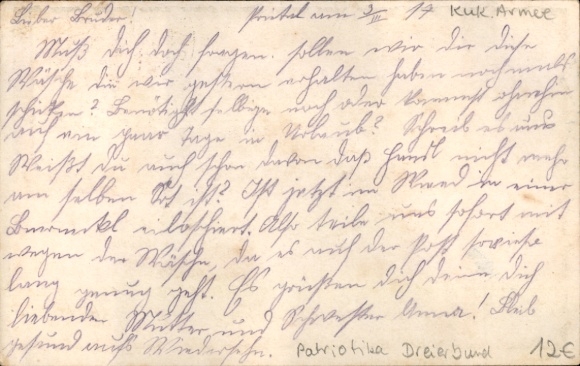 Lieber Bruder! Prietal am 3/III 17 KuK. Armee
Muß dich doch fragen. sollen wir dir diese
Wäsche die wir gestern erhalten haben nochmals
schicken? Benötigst selbige noch oder kommst ohnehin
auf ein paar Tage in Urlaub? Schreib es uns
Weißt du auch schon davon daß Handl nicht mehr
am selben Ort ist? Ist jetzt in in einer
. Also teile uns sofort mit
wegen der Wäsche, da es auf der Post sowieso
lang genug geht. Es grüßen dich deine dich
liebenden Mutter und Schwester Anna! Bleib
gesund aufs Wiedersehn. Patriotika Dreierbund 12€